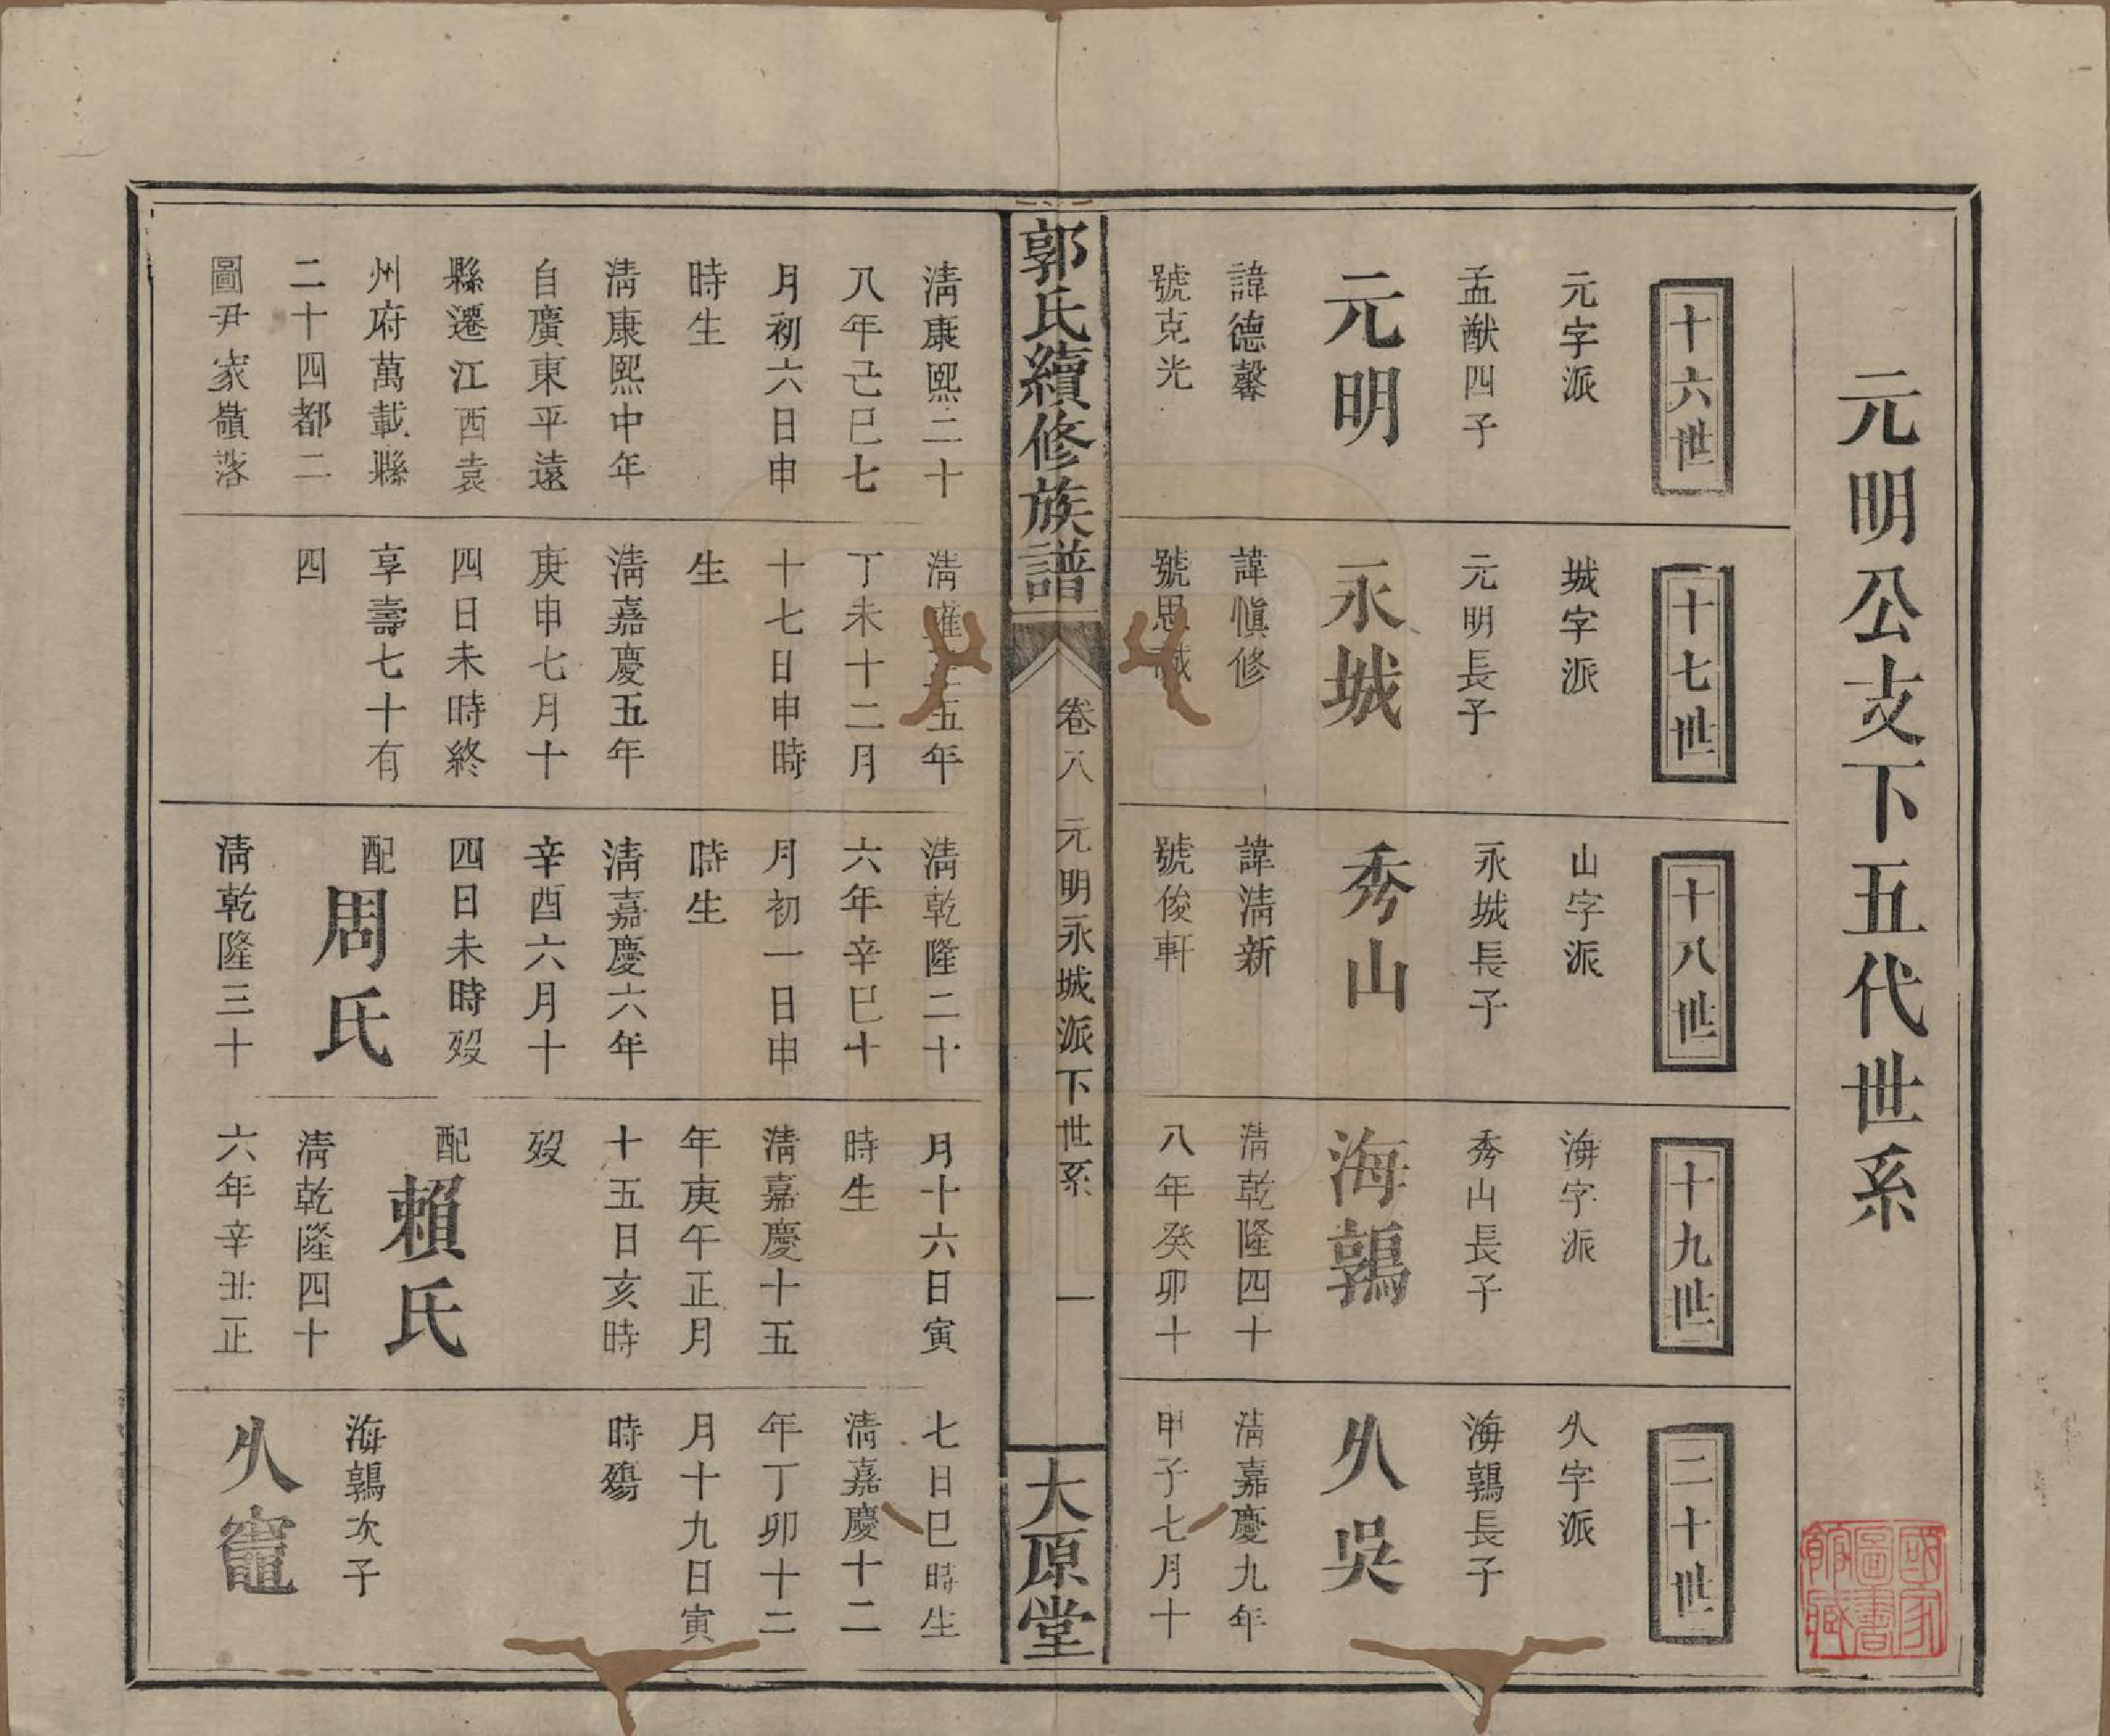 元明公支下五代世系
十六世
元字派
孟猷四子
元明
諱德馨
號克光
十七世
城字派
元明長子
永城
諱慎修
號思
十八世
山字派
永城長子
秀山
諱淸新
號俊軒
十九世
海字派
秀山長子
海鶉
淸乾隆四十
八年癸卯十
二十世
久字派
海鶉長子
久吳
淸嘉慶九年
甲子七月十
郭氏續修族譜
卷八
元明永城派下世系
一
大原堂
淸康熙二十
八年己巳七
月初六日申
時生
淸康熙中年
自廣東平遠
縣遷江西袁
州府萬載縣
二十四都二
圖尹家嶺落
淸雍正五年
丁未十二月
十七日申時
生
淸嘉慶五年
庚申七月十
四日未時終
享壽七十有
四
淸乾隆二十
六年辛巳十
月初一日申
時生
淸嘉慶六年
辛酉六月十
四日未時歿
配周氏
淸乾隆三十
月十六日寅
時生
淸嘉慶十五
年庚午正月
十五日亥時
歿
配賴氏
淸乾隆四十
六年辛丑正
七日巳時生
淸嘉慶十二
年丁卯十二
月十九日寅
時殤
海鶉次子
久竈
國家
圖書
館藏